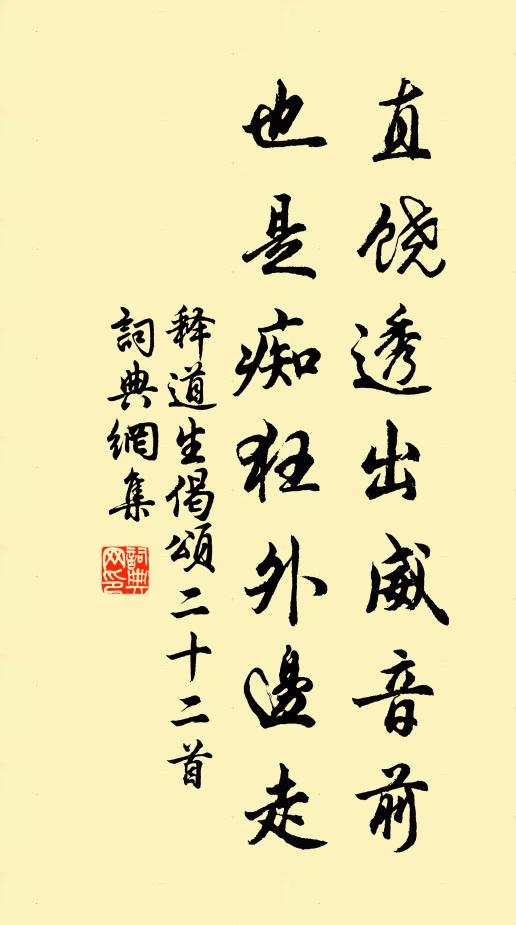 直饶透出威音前
也是痴狂外邊走
释道生偈頌二十二首
詞典網集
詞典網印